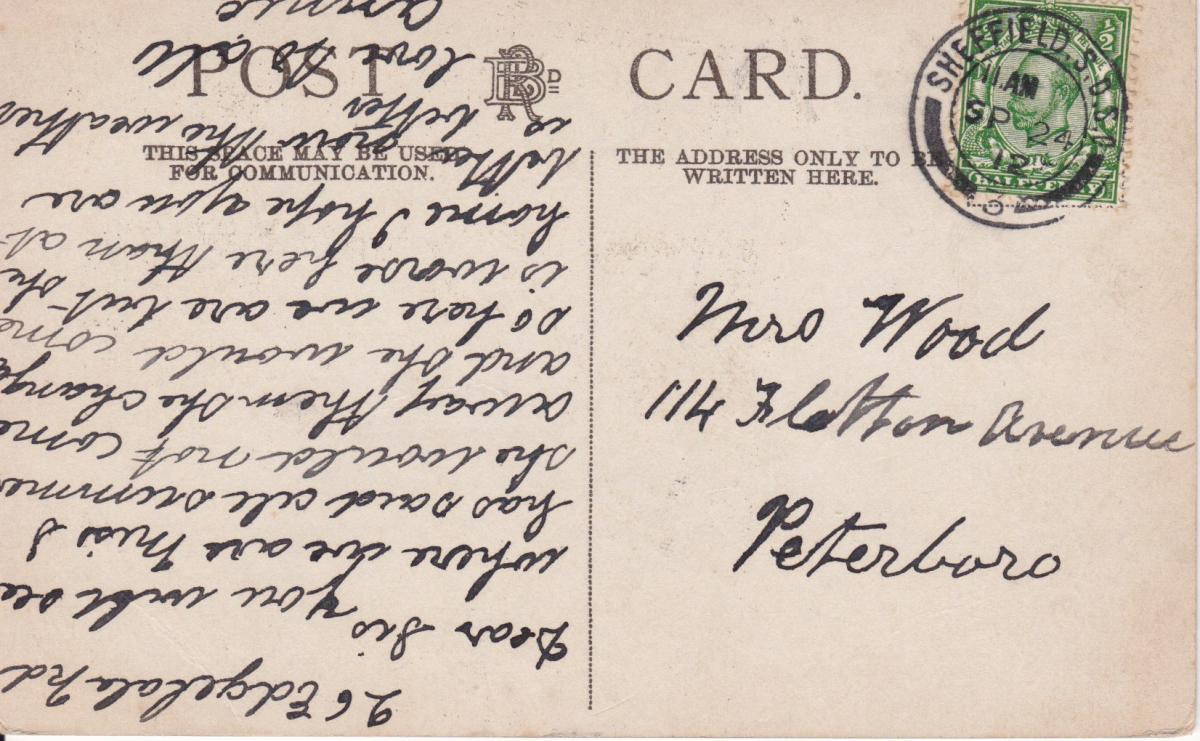 POST CARD.
THIS SPACE MAY BE USED
FOR COMMUNICATION.
THE ADDRESS ONLY TO BE
WRITTEN HERE.
SHEFFIELD. S.D.S.O.
11 AM
SP 24
12
Mrs Wood
114 Fletton Avenue
Peterboro
26 Edgedale Rd
Dear Sis
you will see
where we are Miss J
has said all summer
she would not come
away then she change
and she would come
so here we are but she
is worse here than at
home I hope you are
better now the weather
is better
love to all
Annie